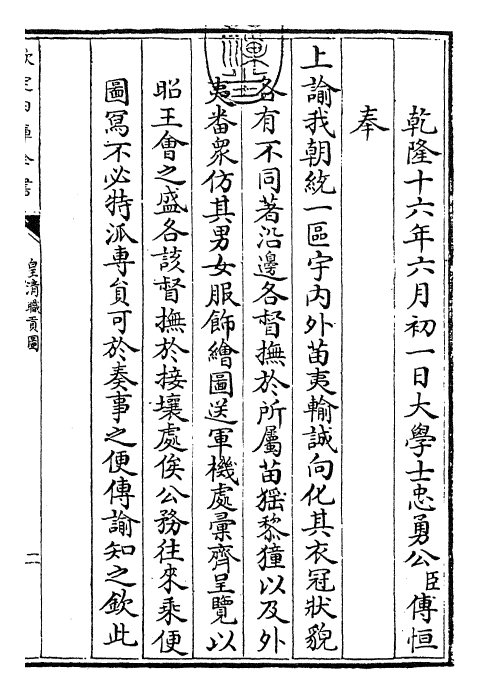 乾隆十六年六月初一日大學士忠勇公臣傅恒
奉
上諭我朝統一區宇内外苗夷輸誠向化其衣冠狀貌
各有不同著沿邊各督撫於所屬苗猺黎獞以及外
夷番衆仿其男女服飾繪圖送軍機處彙齊呈覽以
昭王會之盛各該督撫於接壤處俟公務往來乘便
圖冩不必特派專員可於奏事之便傳諭知之欽此
欽定四庫全書
皇清職貢圖
二